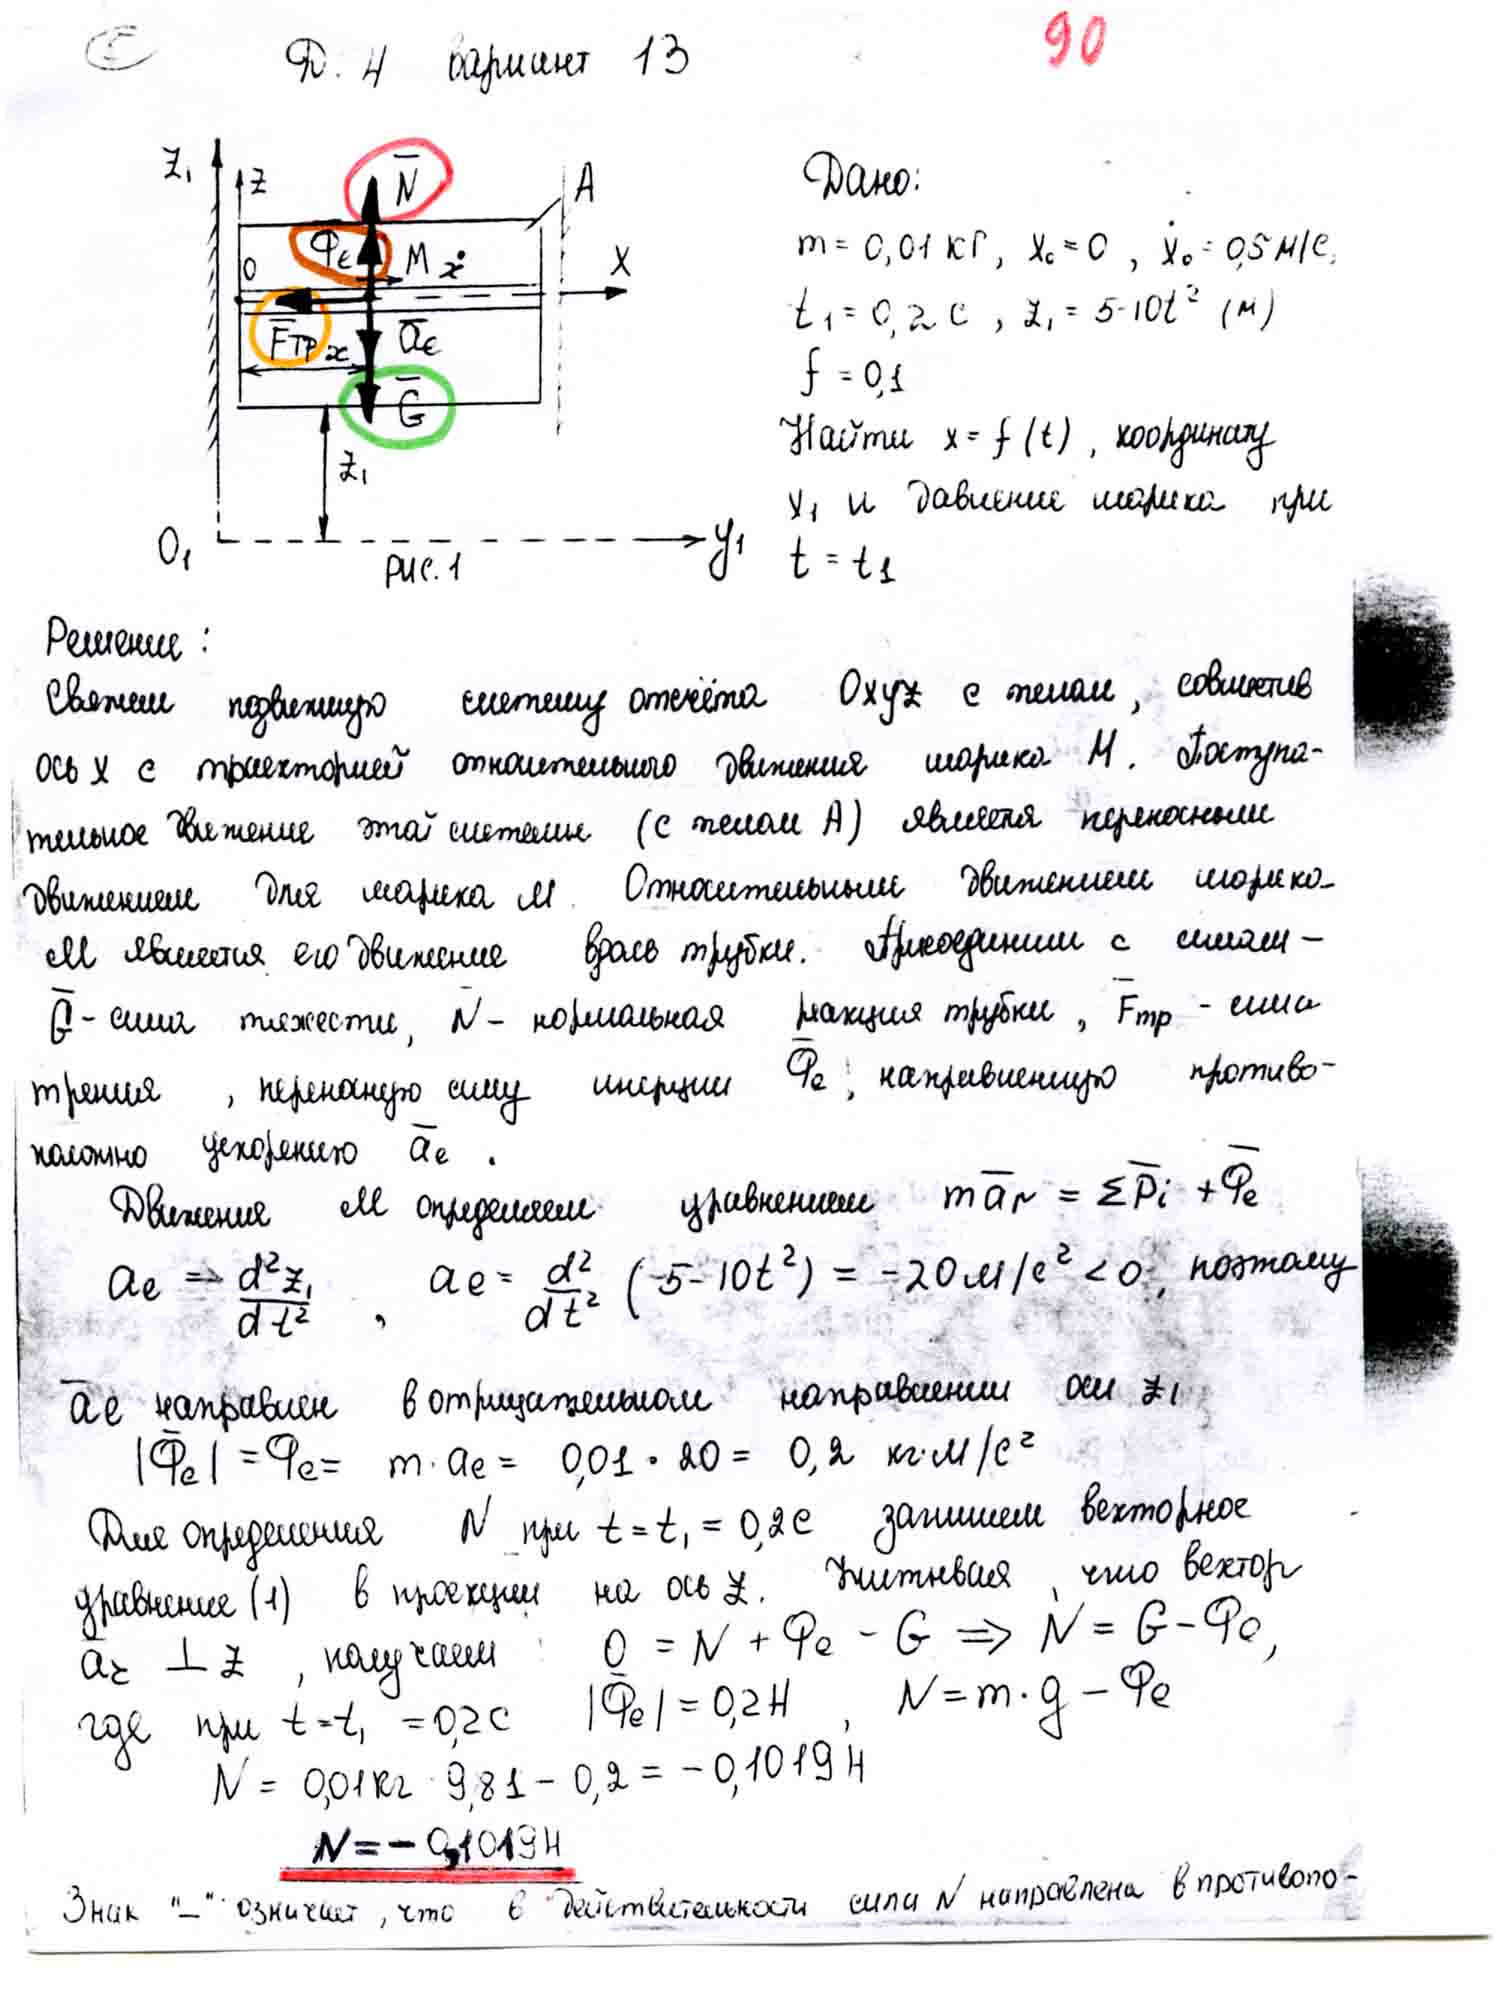 Д. 4 вариант 13
90
Z₁
Z
N̄
A
Φ̄e
M
ẋ
O
X
F̄тр
x
āe
Ḡ
Z₁
O₁
y₁
Рис. 1
Дано:
m = 0,01 кг, x₀ = 0, ẋ₀ = 0,5 м/с,
t₁ = 0,2 с, z₁ = 5-10t² (м)
f = 0,1
Найти x = f(t), координату
x₁ и давление шарика при
t = t₁
Решение:
Свяжем подвижную систему отсчёта Oxyz с телом, совместив
ось x с траекторией относительного движения шарика M. Поступа-
тельное движение этой системы (с телом A) является переносным
движением для шарика M. Относительным движением шарика
M является его движение вдоль трубки. Присоединим с силам -
Ḡ - сила тяжести, N̄ - нормальная реакция трубки, F̄тр - сила
трения, переносную силу инерции Φ̄e, направленную противо-
положно ускорению āe.
Движения M определяем уравнением mār = ΣP̄i + Φ̄e
ae => d²z₁/dt², ae = d²/dt² (5-10t²) = -20 м/с² < 0, поэтому
āe направлен в отрицательном направлении оси z₁
|Φ̄e| = Φe = m·ae = 0,01·20 = 0,2 кг·м/с²
Для определения N при t = t₁ = 0,2с запишем векторное
уравнение (1) в проекции на ось z. Учитывая, что вектор
ār ⊥ z, получаем: 0 = N + Φe - G => N = G - Φe,
где при t = t₁ = 0,2с |Φ̄e| = 0,2Н, N = m·g - Φe
N = 0,01кг·9,81 - 0,2 = -0,1019Н
N = -0,1019Н
Знак "-" означает, что в действительности сила N направлена в противопо-